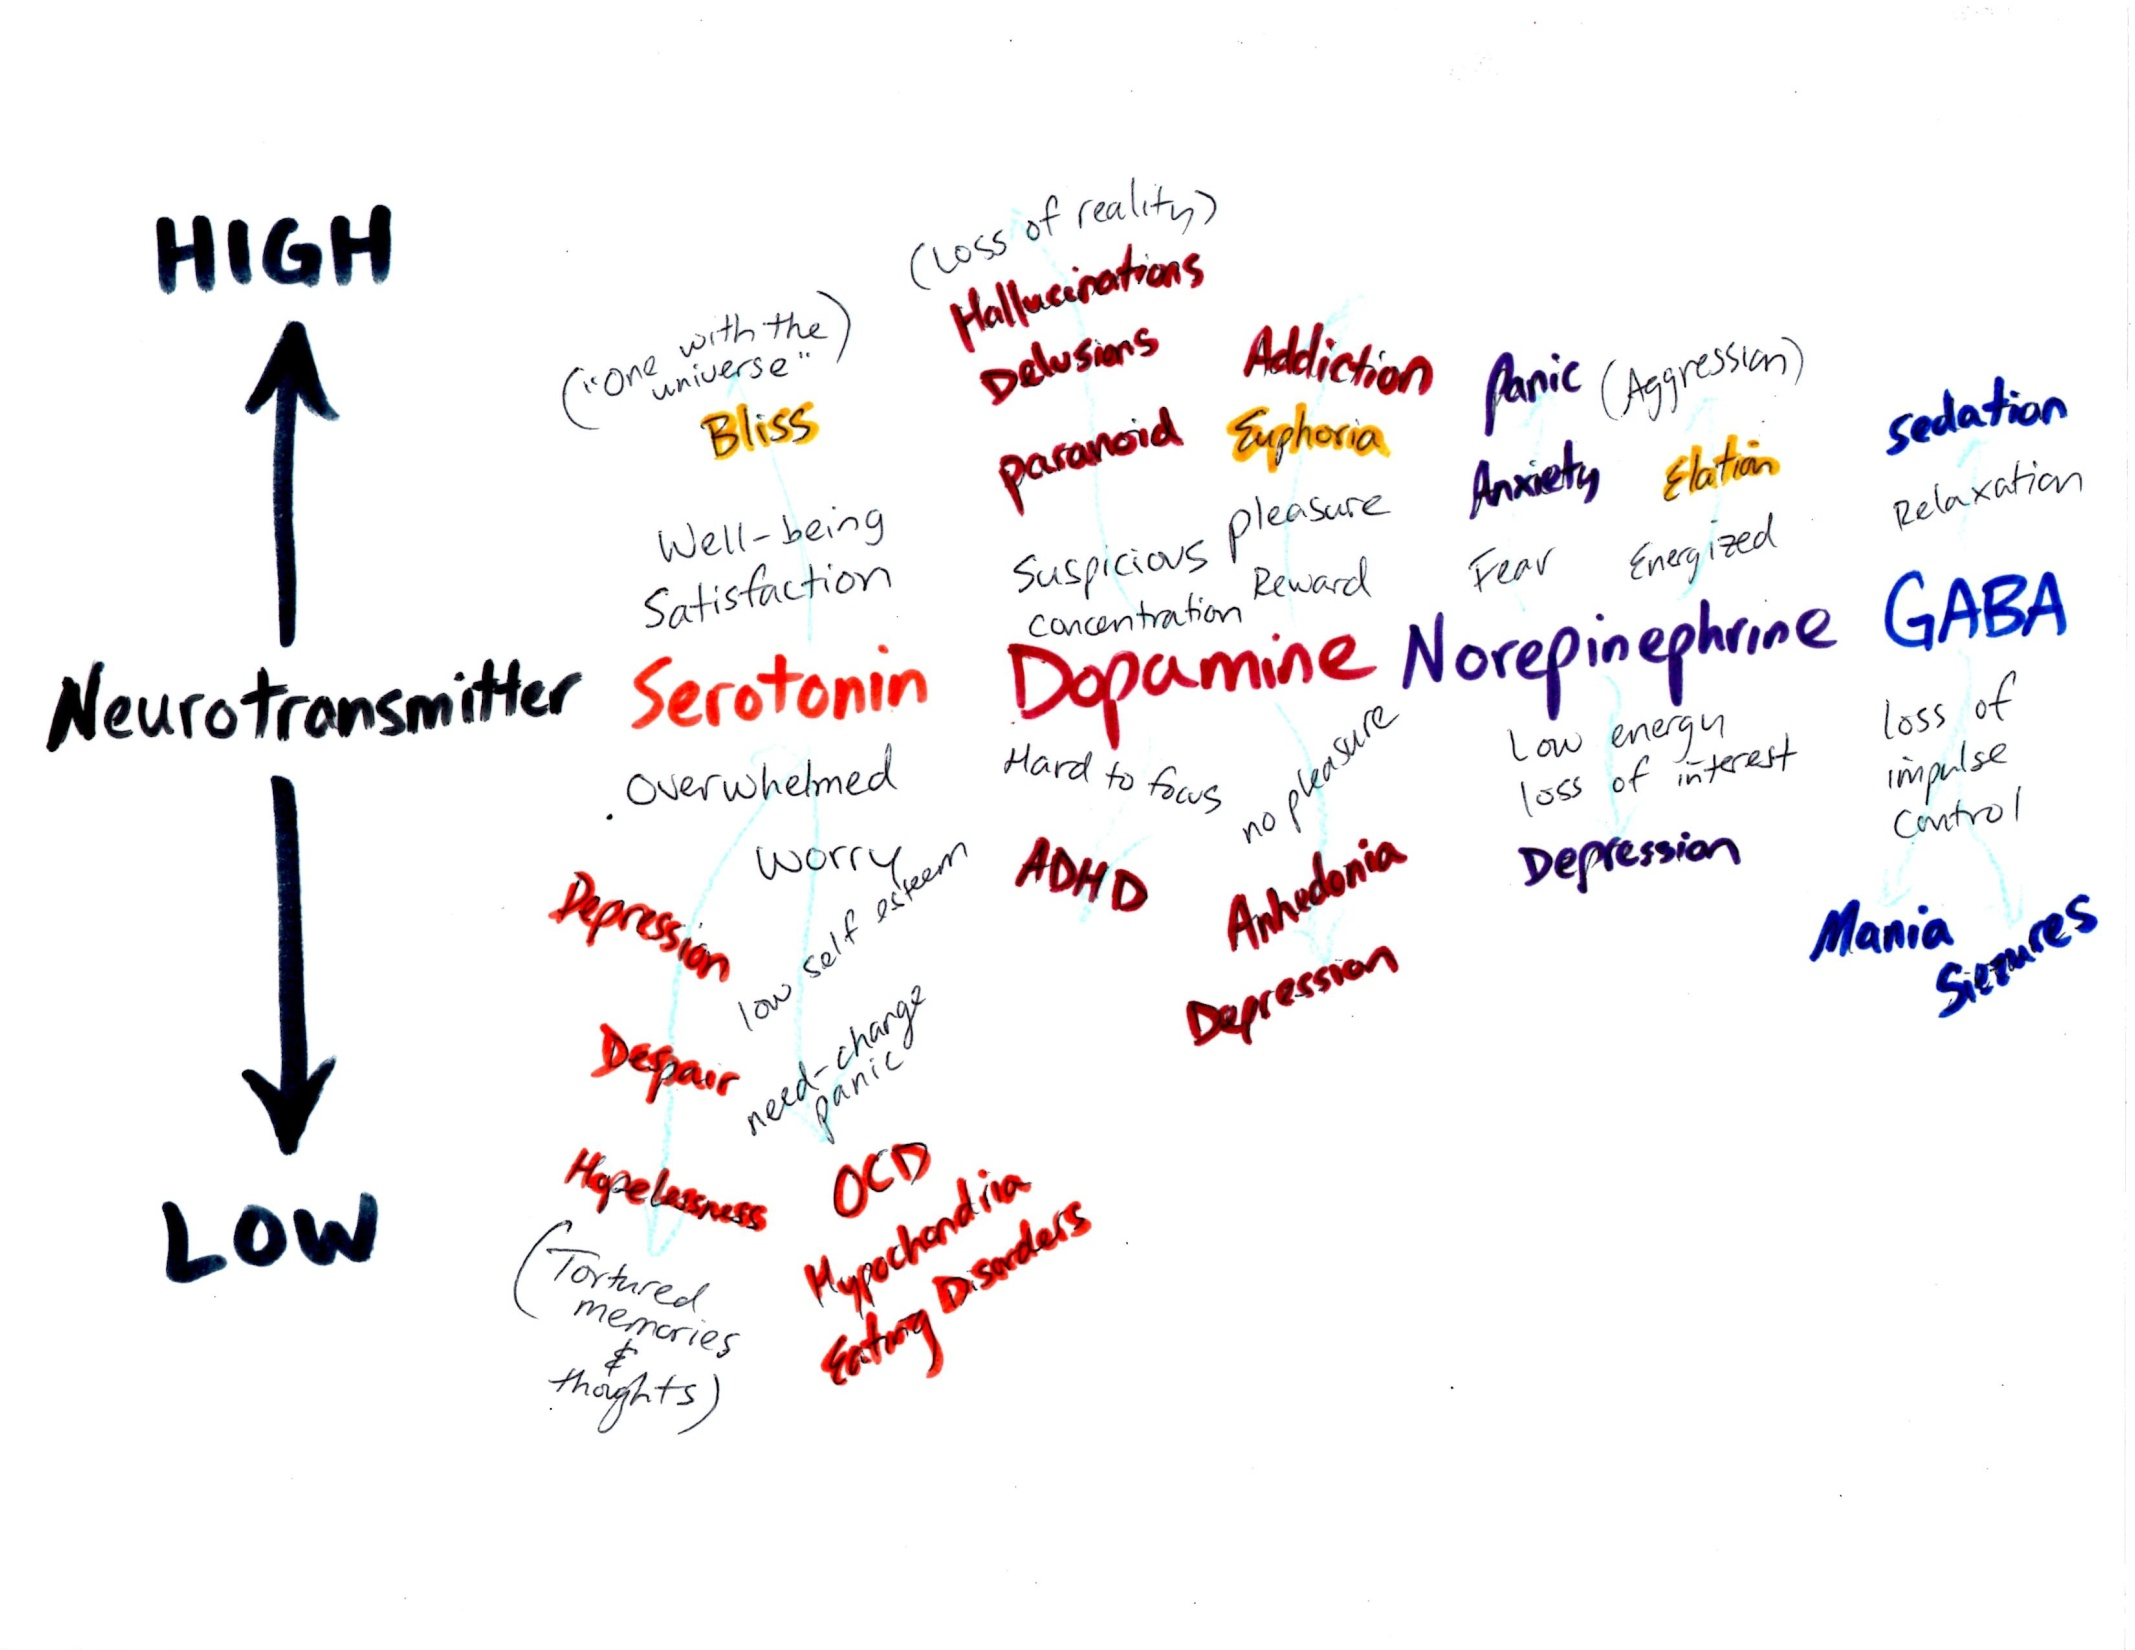 HIGH
Neurotransmitter
LOW
("One with the
universe")
Bliss
Well-being
Satisfaction
Serotonin
Overwhelmed
Worry
low self esteem
need-change
panic
Depression
Despair
Hopelessness
(Tortured
memories
&
thoughts)
OCD
Hypochondria
Eating Disorders
(Loss of reality)
Hallucinations
Delusions
paranoid
Suspicious
concentration
Addiction
Euphoria
pleasure
Reward
Dopamine
Hard to focus
ADHD
no pleasure
Anhedonia
Depression
Panic (Aggression)
Anxiety
Fear
Elation
Energized
Norepinephrine
Low energy
loss of interest
Depression
sedation
Relaxation
GABA
loss of
impulse
control
Mania
Siezures